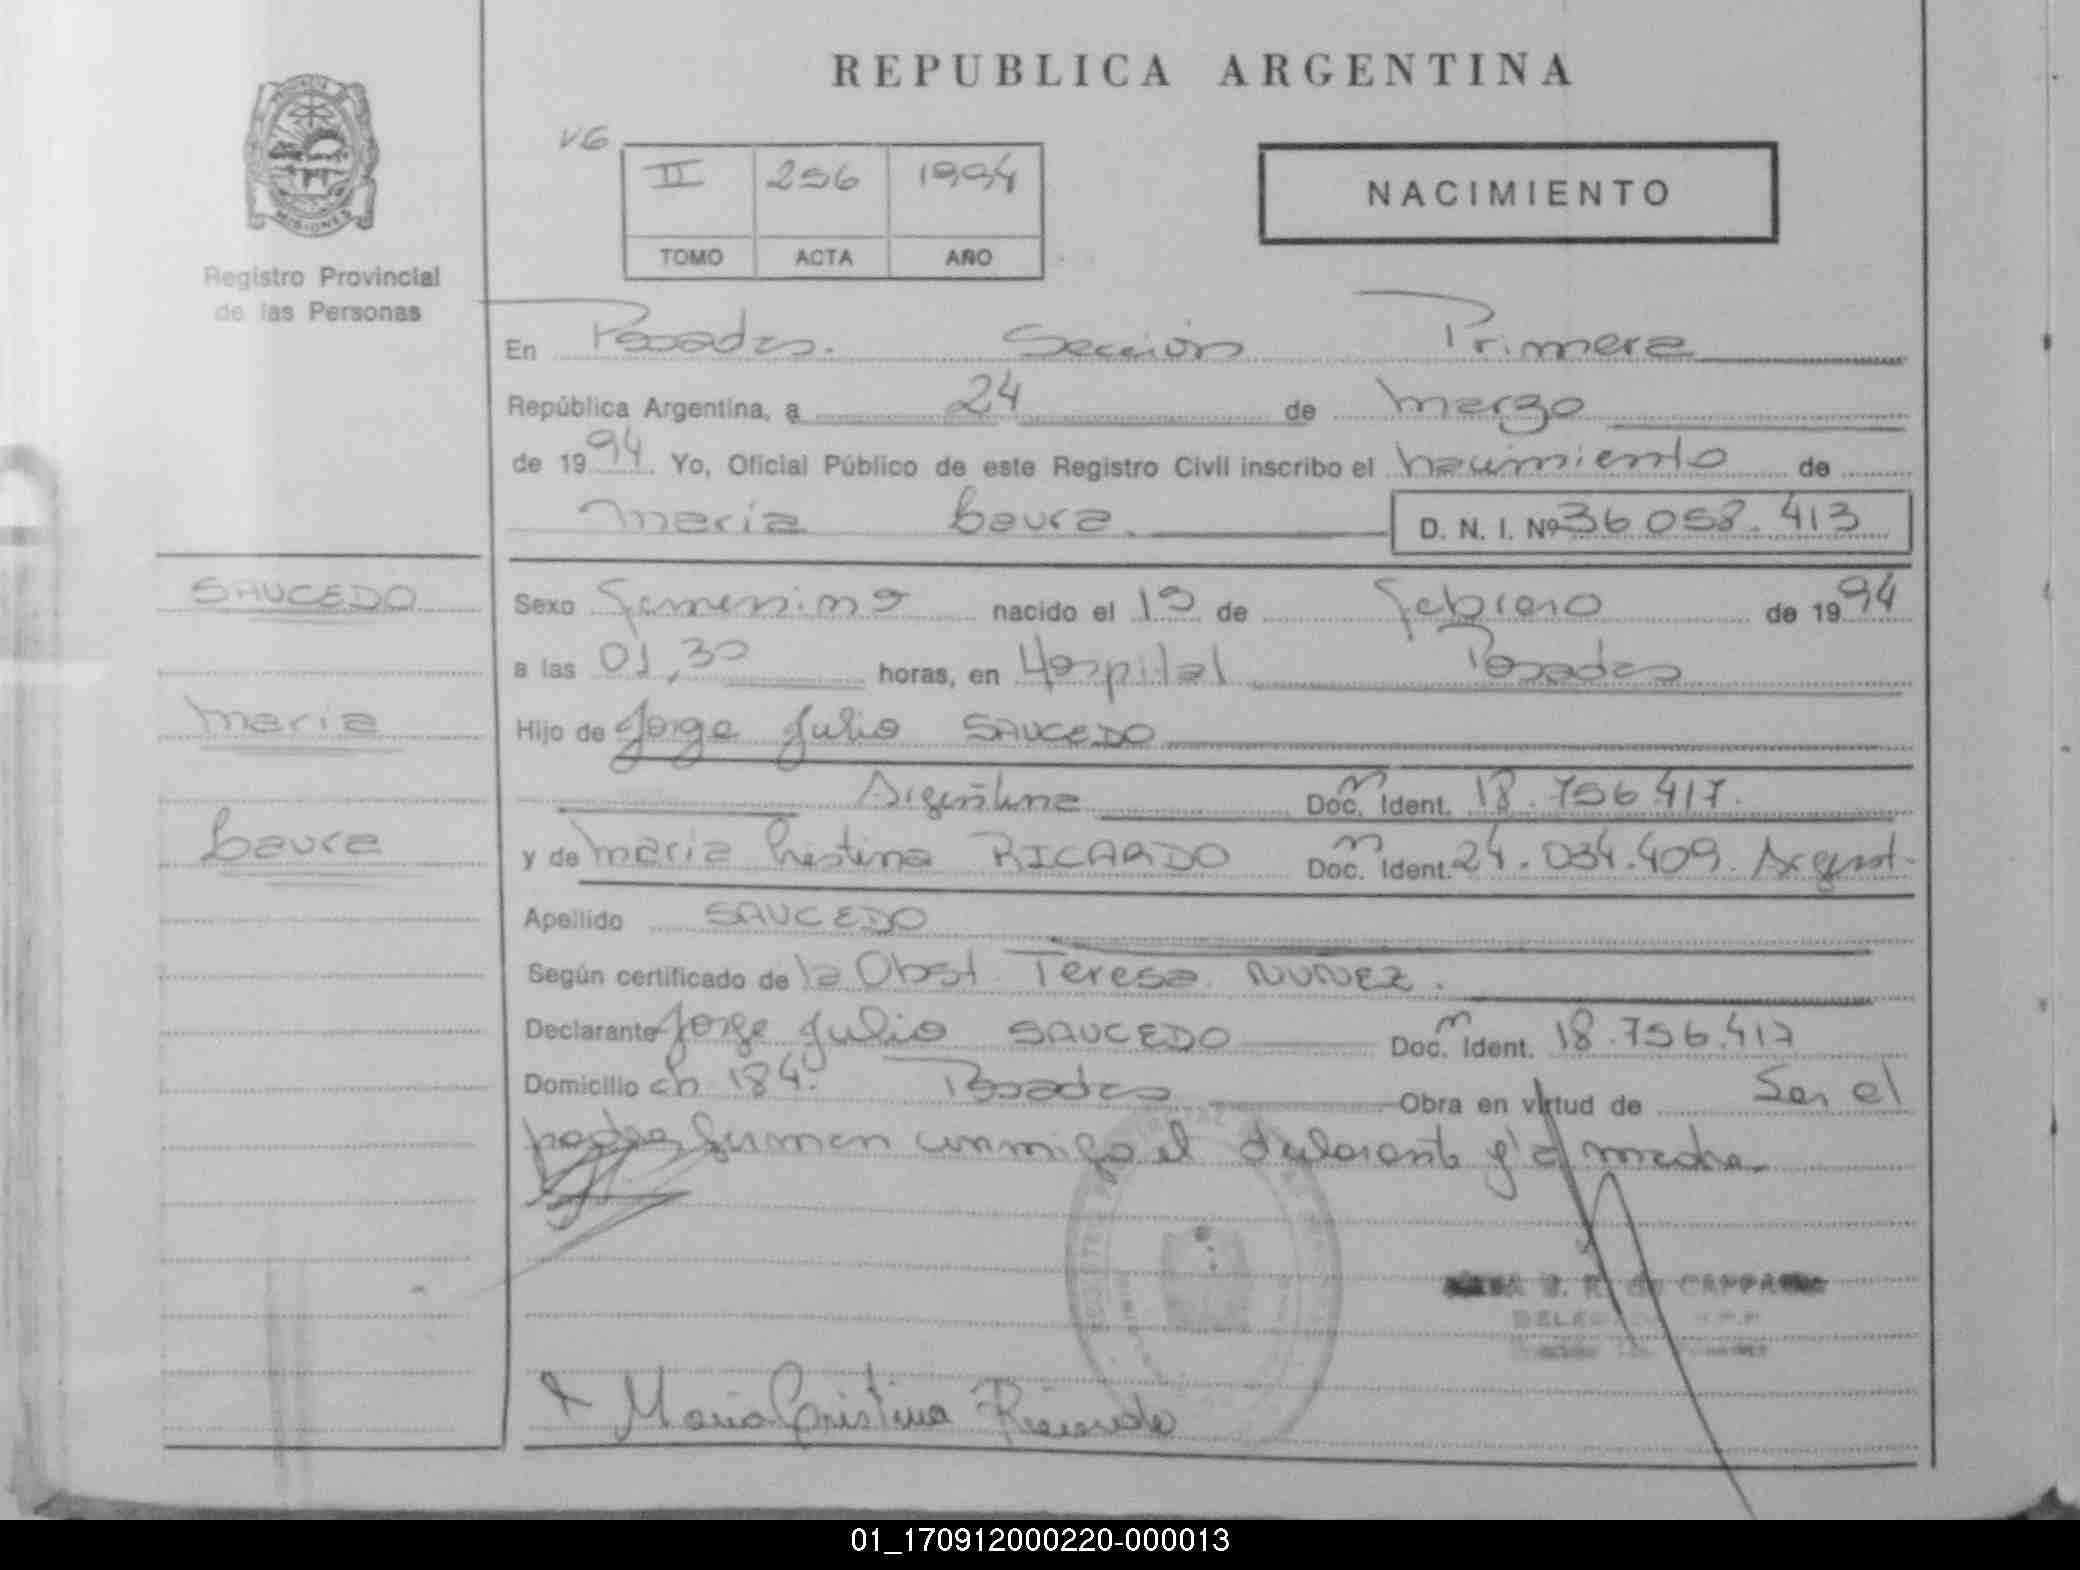 REPUBLICA ARGENTINA
V6
II 256 1994
TOMO ACTA AÑO
NACIMIENTO
PROVINCIA
MISIONES
Registro Provincial
de las Personas
En Posadas. Sección Primera
República Argentina, a 24 de marzo
de 1994 Yo, Oficial Público de este Registro Civil inscribo el nacimiento de
María Laura. D. N. I. Nº 36 058.413
SAUCEDO
María
Laura
Sexo femenino nacido el 19 de febrero de 1994
a las 01,30 horas, en Hospital Posadas
Hijo de Jorge Julio SAUCEDO
Argentina Doc. Ident. 18.756.417.
y de María Cristina RICARDO Doc. Ident. 24.034.409. Argent.
Apellido SAUCEDO
Según certificado de la Obst. Teresa NUNEZ.
Declarante Jorge Julio SAUCEDO Doc. Ident. 18.756.417
Domicilio ch 184. Posadas Obra en virtud de Ser el
padre firman conmigo el declarante y la madre
R. de CAPPA
DELE
Maria Cristina Ricardo
01_170912000220-000013